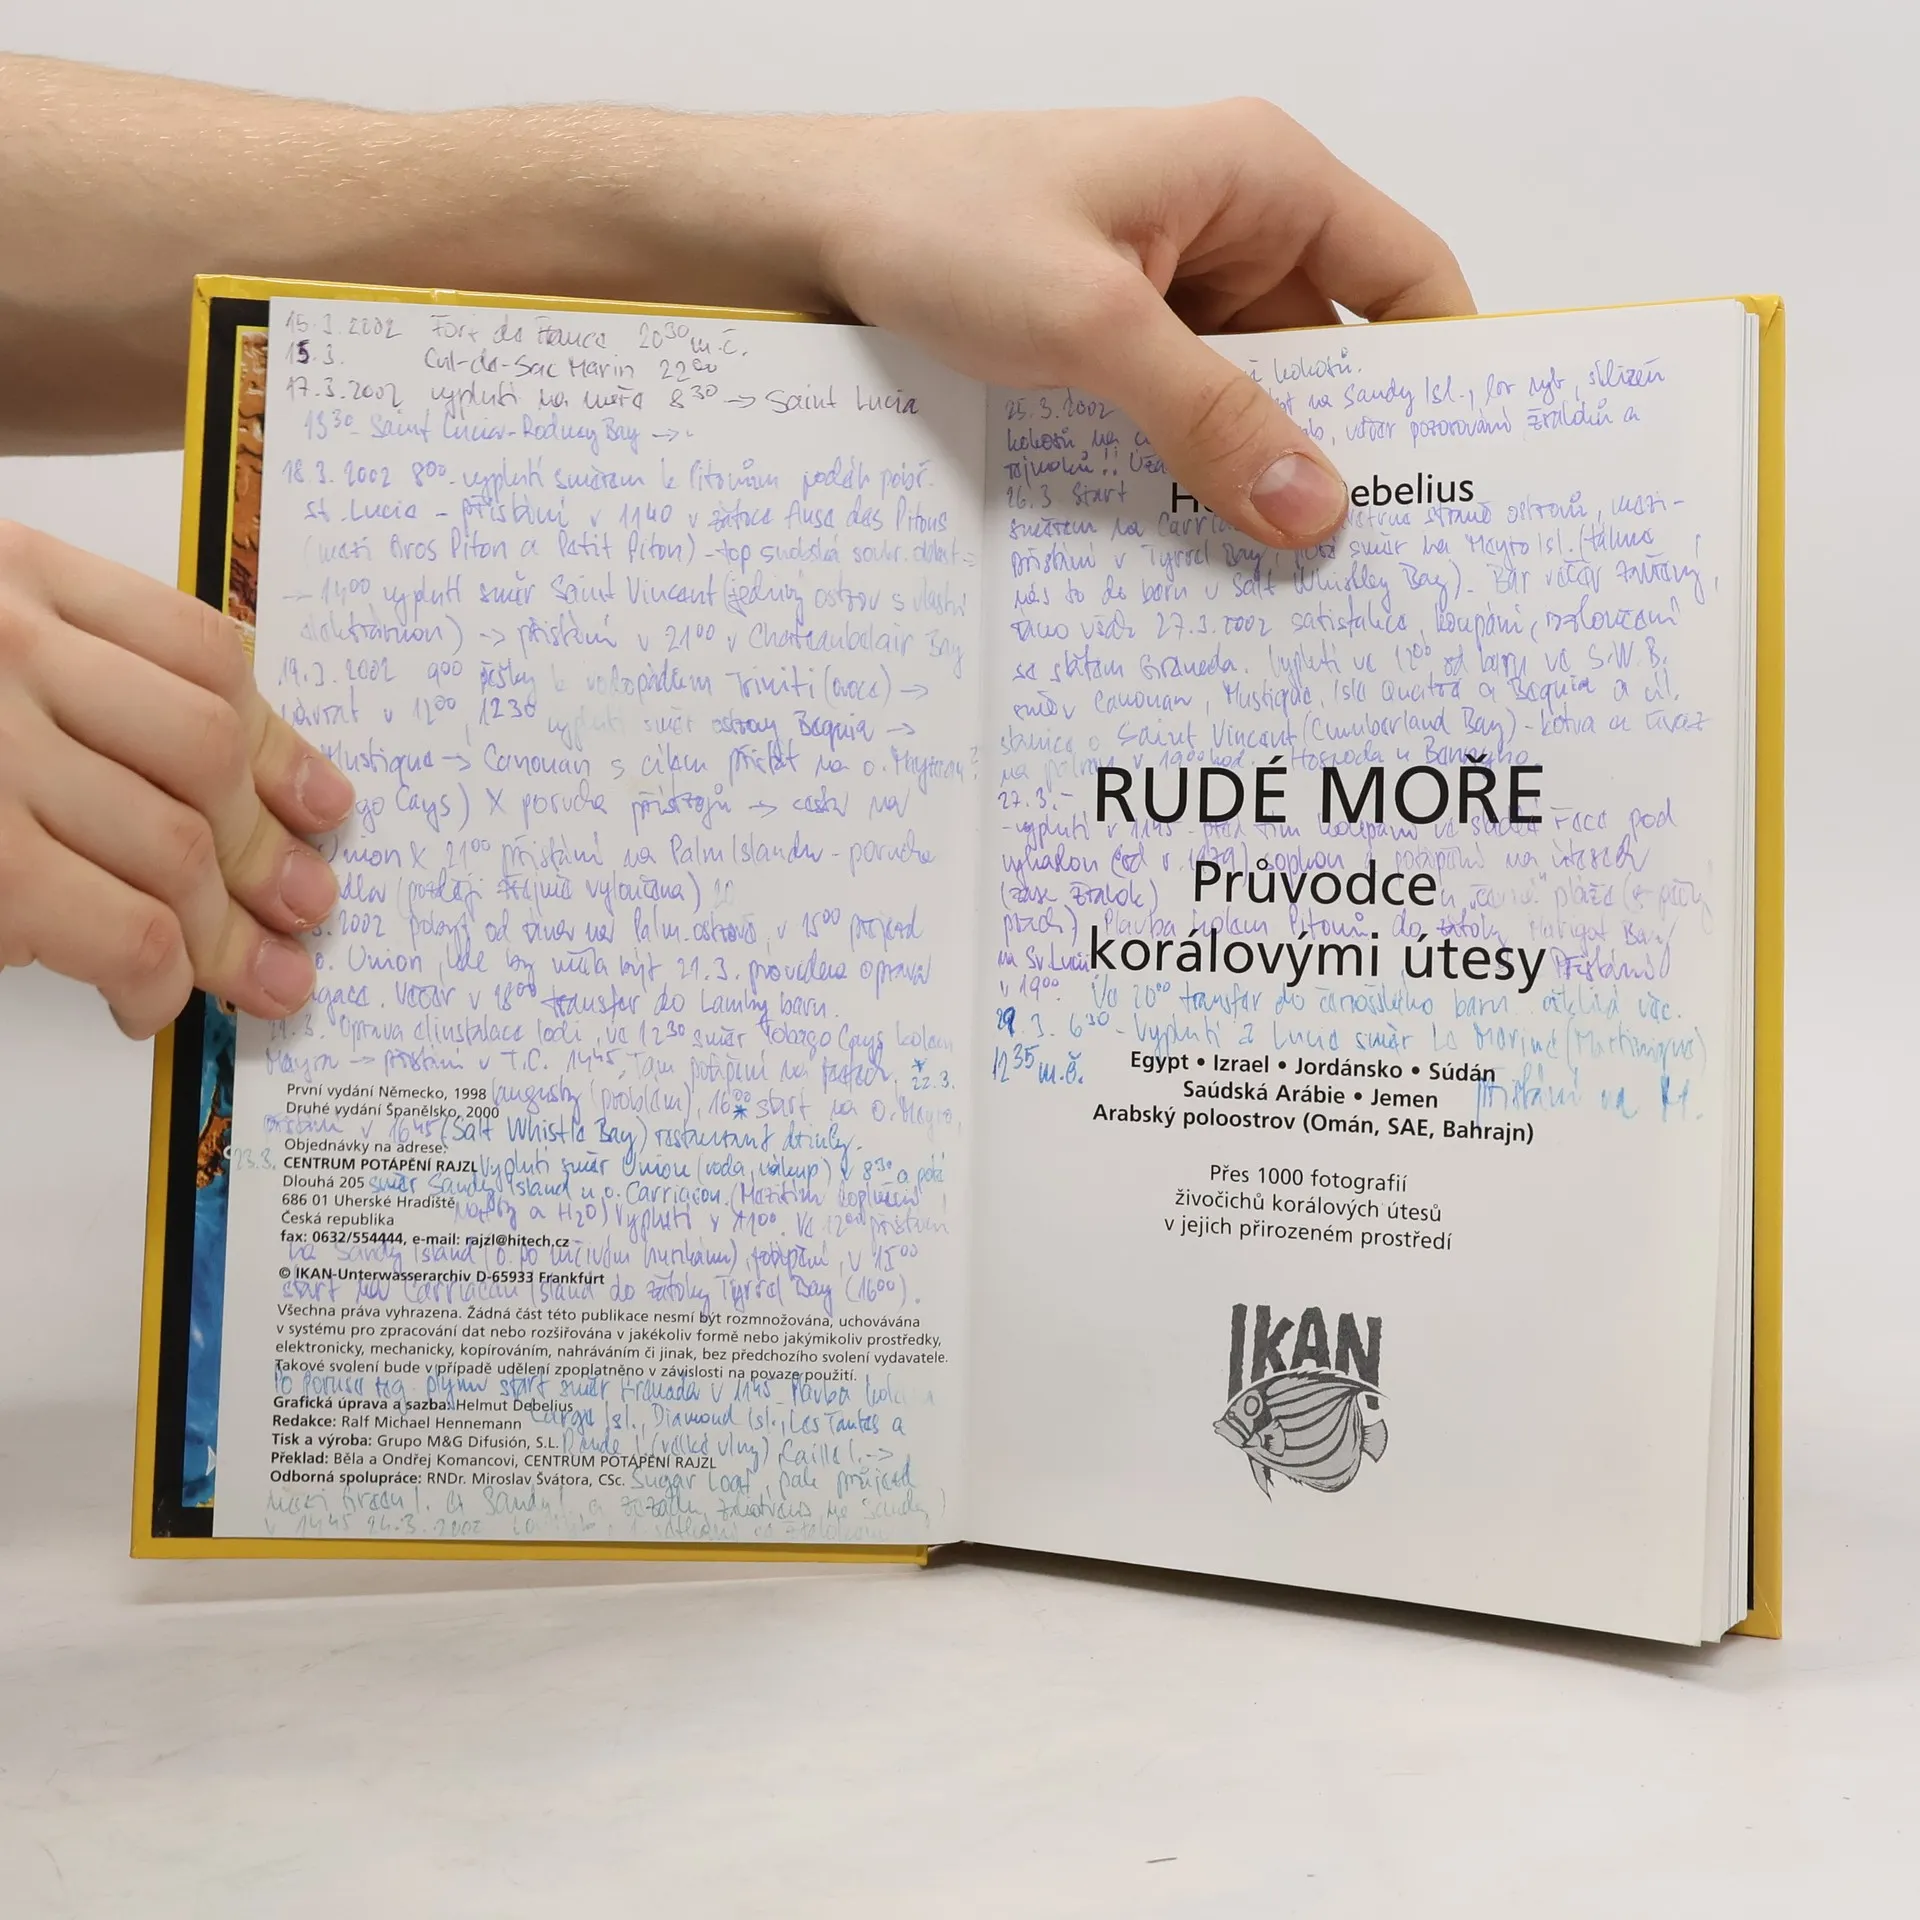 15.3.2002 Fort de France 20³⁰ m.č.
15.3. Cul-de-Sac Marin 22⁰⁰
17.3.2002 vyplutí na moře 8³⁰ → Saint Lucia
13³⁰ - Saint Lucia - Rodney Bay →
18.3.2002 8⁰⁰ - vyplutí směrem k Pitonům podél pobř.
st. Lucie - přistání v 11⁴⁰ v zátoce Anse des Pitons
(mezi Gros Piton a Petit Piton) - top
→ 14⁰⁰ vyplutí směr Saint Vincent (jediný ostrov s vlastní
elektrárnou) → přistání v 21⁰⁰ v Chateaubelair Bay
19.3.2002 9⁰⁰ pěšky k vodopádům Triniti (ovoce) →
návrat v 12⁰⁰, 12³⁰ vyplutí směr ostrovy Bequia →
Mustique → Canouan s cílem přistát na o. Mayreau
go Cays) X porucha přístrojů → cesta na
Union X 21⁰⁰ přistání na Palm Islandu - porucha
(později zřejmě vyloučena)
2002 pobyt od rána na Palm ostrově, v 15⁰⁰ příjezd
o. Union, kde by měla být 21.3. provedena oprava
Večer v 18⁰⁰ transfer do Lamby baru.
21.3. Oprava el. instalace lodi, ve 12³⁰ směr Tobago Cays kolem
Mayra → přistání v T.C. 14⁴⁵, Tam potápění na *
22.3.
První vydání Německo, 1998 langusty (problém), 16⁰⁰ * start na o. Mayro,
Druhé vydání Španělsko, 2000
přistání v 16⁴⁵ (Salt Whistle Bay) restaurant drinky.
Objednávky na adrese:
23.3.
CENTRUM POTÁPĚNÍ RAJZL Vyplutí směr Union (voda, nákup) v 8³⁰ a poté
Dlouhá 205 směr Sandy Island u o. Carriacou. (Mezitím doplnění
686 01 Uherské Hradiště nafty a H2O) Vyplutí v 11⁰⁰. Ve 12⁰⁰ přistání
Česká republika
fax: 0632/554444, e-mail: rajzl@hitech.cz
na Sandy Island (o. po ničivém hurikánu), potápění, v 15⁰⁰
© IKAN-Unterwasserarchiv D-65933 Frankfurt
start na Carriacou Island do zátoky Tyrrel Bay (16⁰⁰).
Všechna práva vyhrazena. Žádná část této publikace nesmí být rozmnožována, uchovávána
v systému pro zpracování dat nebo rozšiřována v jakékoliv formě nebo jakýmikoliv prostředky,
elektronicky, mechanicky, kopírováním, nahráváním či jinak, bez předchozího svolení vydavatele.
Takové svolení bude v případě udělení zpoplatněno v závislosti na povaze použití.
Po poruše reg. plynu start směr Grenada v 11⁴⁵ - Plavba kolem
Grafická úprava a sazba: Helmut Debelius
Redakce: Ralf Michael Hennemann Large Isl., Diamond Isl., Les Tantes a
Tisk a výroba: Grupo M&G Difusión, S.L. Ronde I. (velké vlny) Caille I. →
Překlad: Běla a Ondřej Komancovi, CENTRUM POTÁPĚNÍ RAJZL
Odborná spolupráce: RNDr. Miroslav Švátora, CSc. Sugar Loaf, pak průjezd
mezi Green I. a Sandy I. a
v 14⁴⁵ 24.3.2002
kokosů.
25.3.2002 na Sandy Isl., lov ryb, sklizeň
kokosů na večer pozorování žraloků a
rejnoků!!
26.3. Start
Helmut Debelius
směrem na Carriacou straně ostrova, mezi-
přistání v Tyrrel Bay, poté směr na Mayro Isl. (táhne
nás to do baru v Salt Whistley Bay). Bar večer zavřený,
ráno však 27.3.2002 satisfakce, koupání, rozloučení
se státem Grenada. Vyplutí ve 12⁰⁰ od baru ve S.W.B.
směr Canouan, Mustique, Isle Quatre a Bequia a cíl.
stanice o. Saint Vincent (Cumberland Bay) - kotva a úvaz
na palmu v 19⁰⁰ hod. Hospoda u Bennyho.
RUDÉ MOŘE
27.3. -
- vyplutí v 11⁴⁵ - před tím koupání ve sladké řece pod
vyhaslou (od r. 1979) sopkou a potápění na útesech
Průvodce
(zase žralok) u "černé" pláže (
písek) Plavba kolem Pitonů do zátoky Marigot Bay
korálovými útesy
na Sv. Lucii Přistání
v 19⁰⁰. Ve 20⁰⁰ transfer do černošského baru
29.3. 6³⁰ - Vyplutí z Lucie směr Le Marine (Martinique)
12³⁵ m.č. přistání na M.
Egypt • Izrael • Jordánsko • Súdán
Saúdská Arábie • Jemen
Arabský poloostrov (Omán, SAE, Bahrajn)
Přes 1000 fotografií
živočichů korálových útesů
v jejich přirozeném prostředí
IKAN